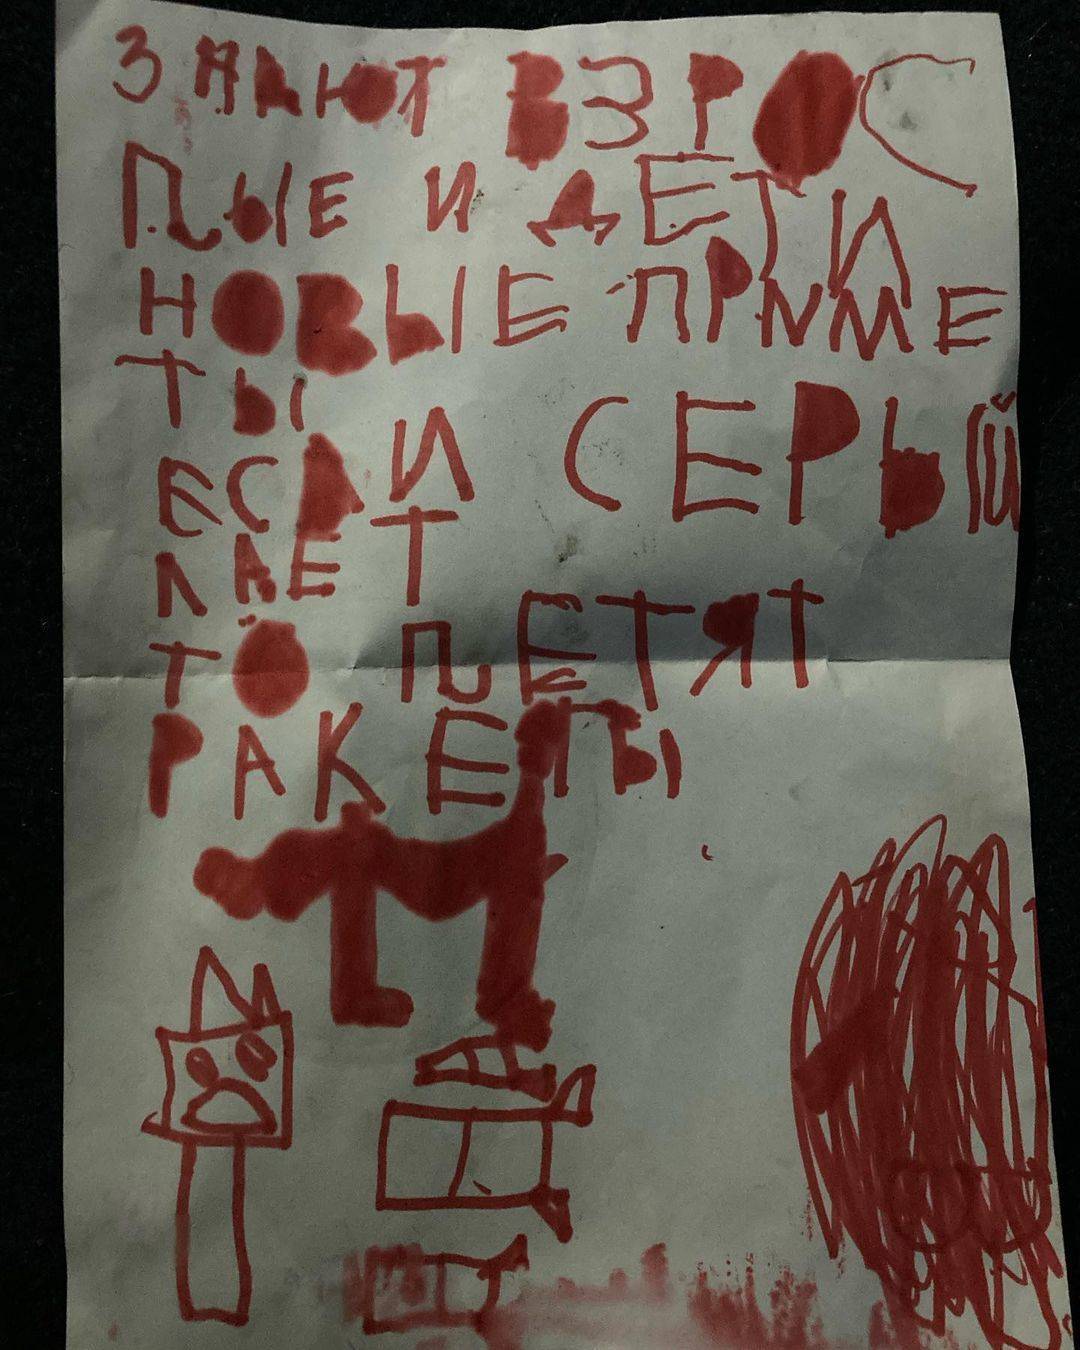 ЗНАЮТ ВЗРОС
ЛЫЕ И ДЕТИ
НОВЫЕ ПРИМЕ
ТЫ
ЕСЛИ СЕРЫЙ
ЛАЕТ
ТО ЛЕТЯТ
РАКЕТЫ